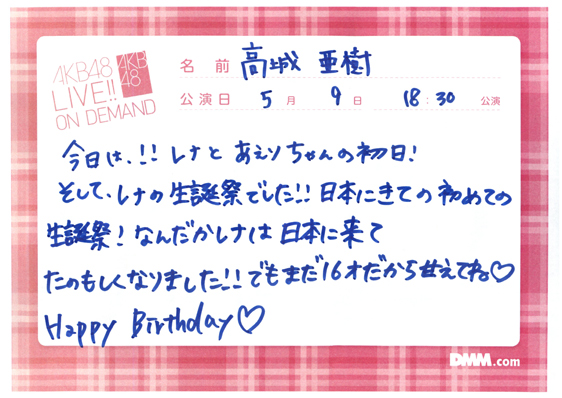 AKB48
LIVE!!
ON DEMAND
AKB
48
名前 高城 亜樹
公演日 5月 9日 18:30 公演
今日は、!! レナと あえりちゃんの初日!
そして、レナの生誕祭でした!! 日本にきての初めての
生誕祭! なんだかレナは 日本に来て
たのもしくなりました!! でもまだ16才だから甘えてね♡
Happy Birthday♡
DMM.com